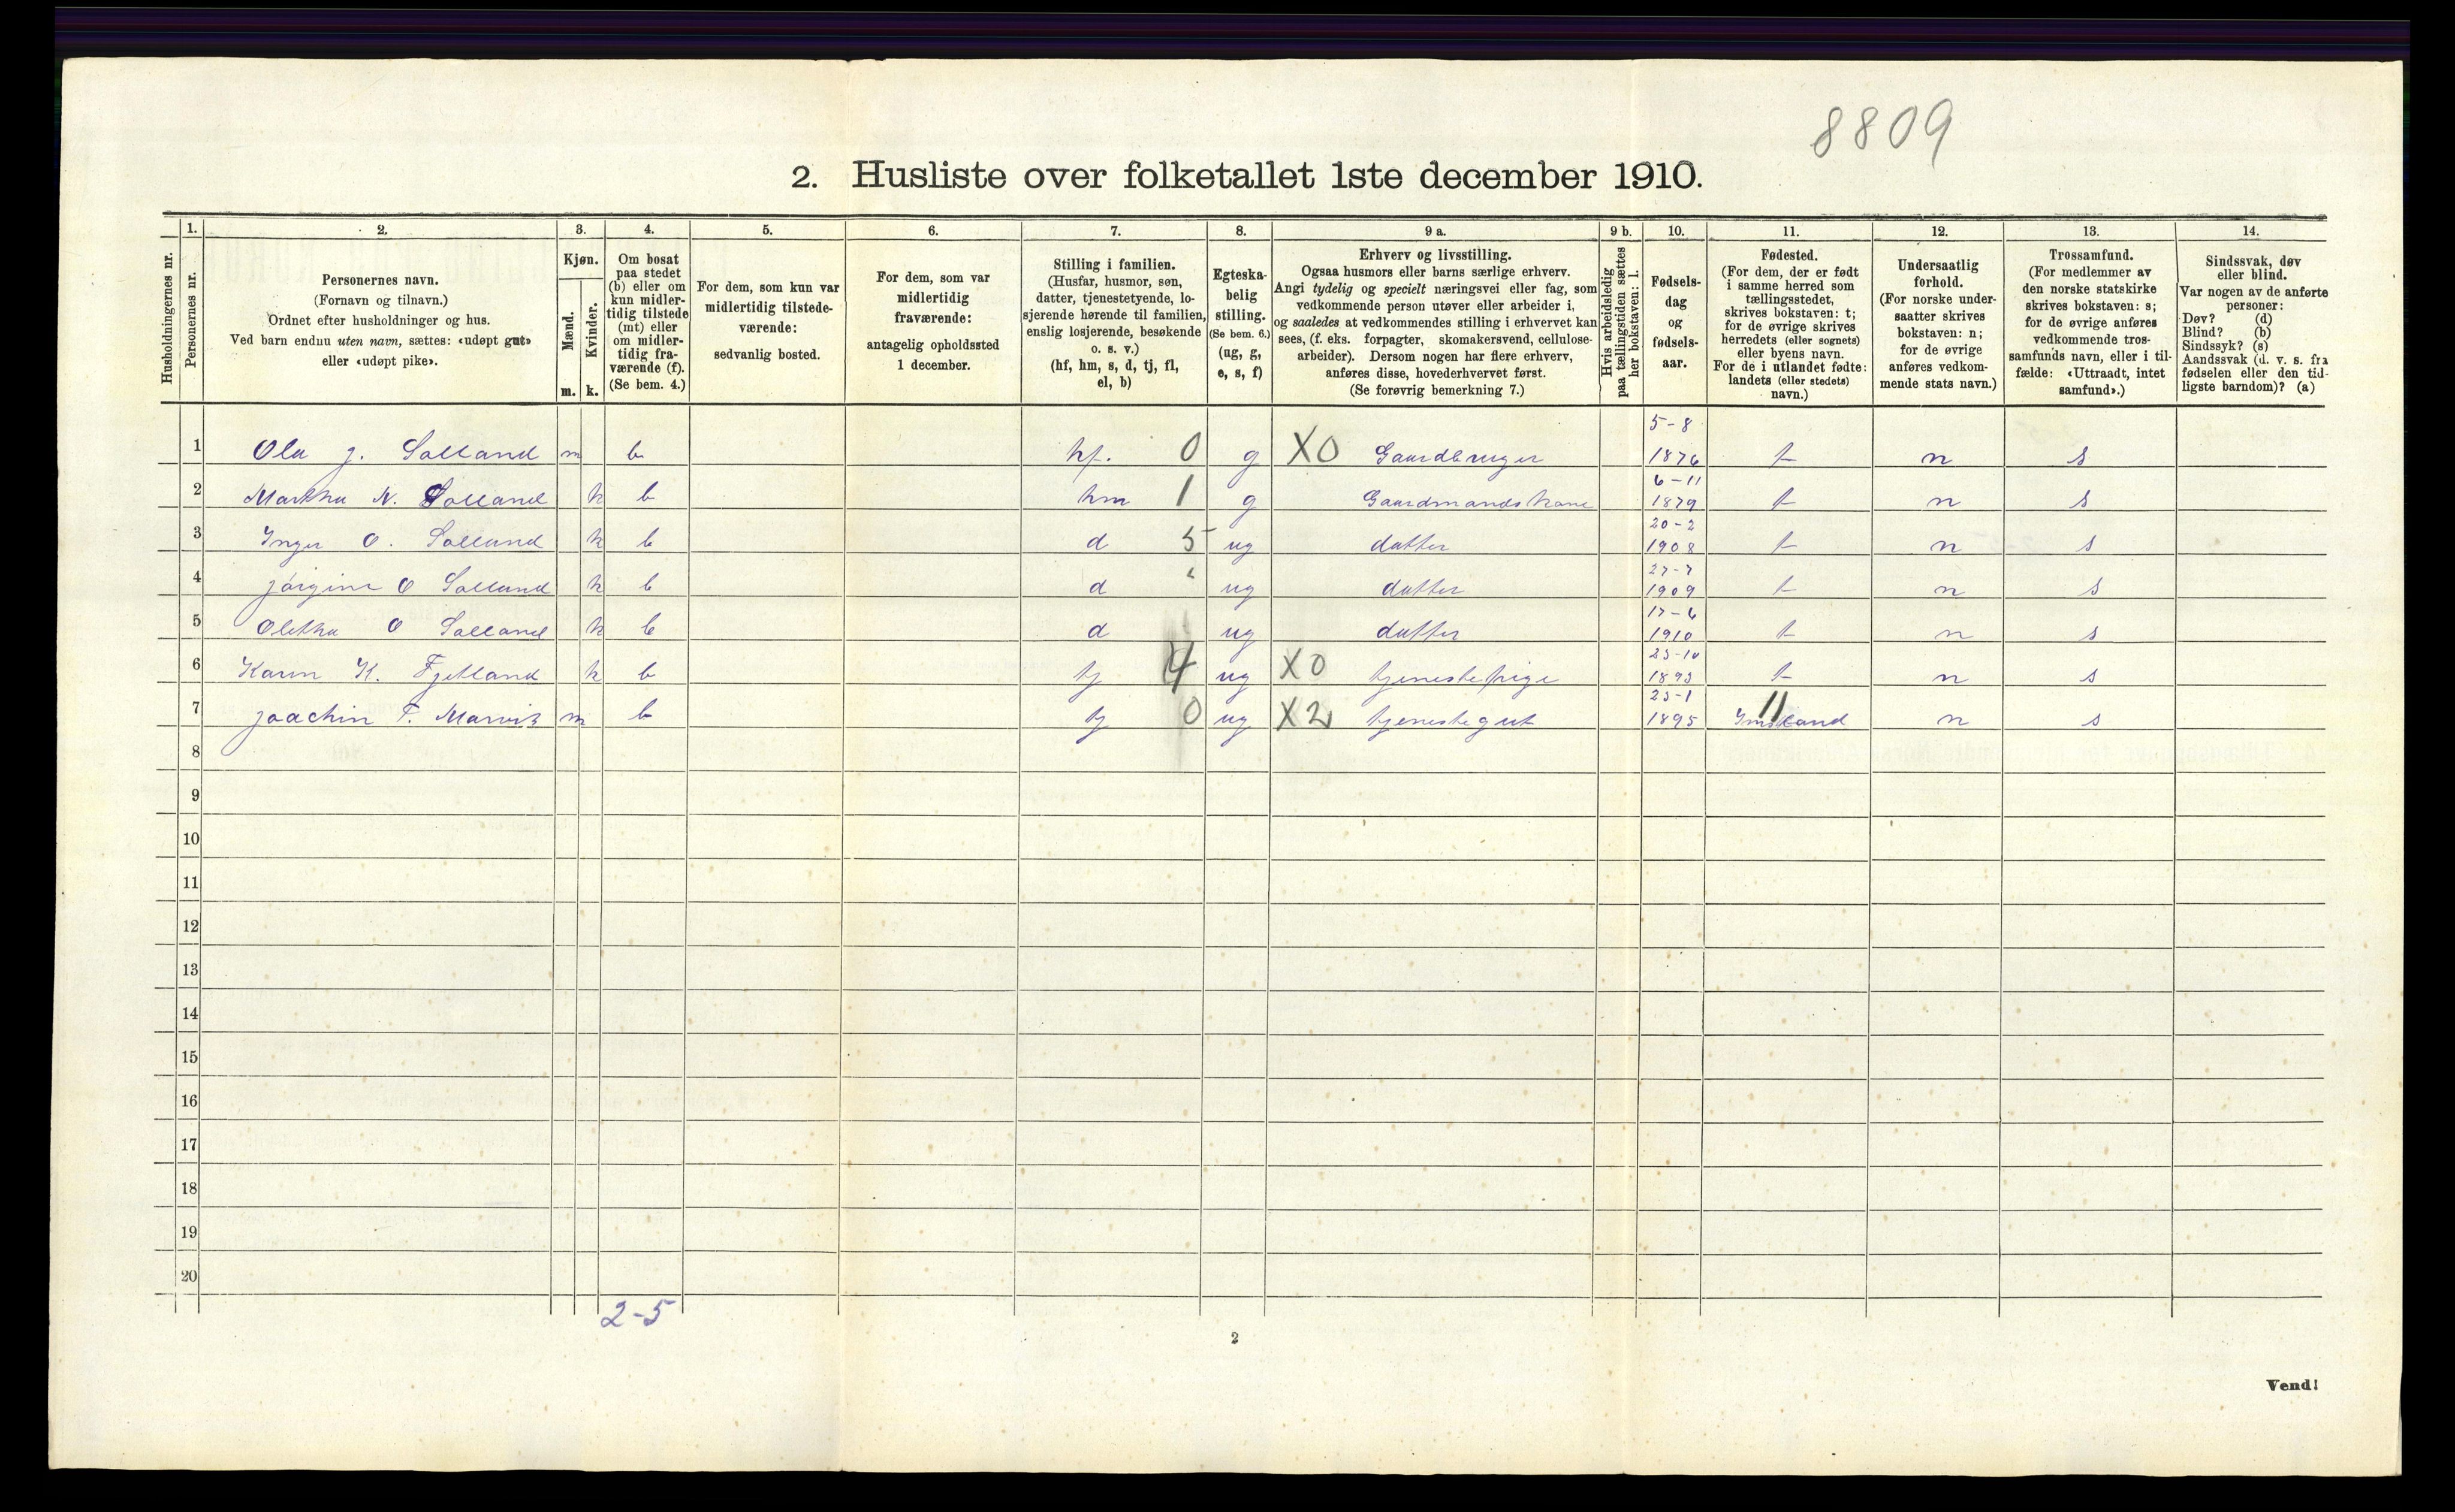 8809
2. Husliste over folketallet 1ste december 1910.
Husholdningernes nr.
1.
Personernes nr.
2.
Personernes navn.
(Fornavn og tilnavn.)
Ordnet efter husholdninger og hus.
Ved barn endnu uten navn, sættes: «udøpt gut»
eller «udøpt pike».
3.
Kjøn.
Mænd.
Kvinder.
m. k.
4.
Om bosat
paa stedet
(b) eller om
kun midler-
tidig tilstede
(mt) eller
om midler-
tidig fra-
værende (f).
(Se bem. 4.)
5.
For dem, som kun var
midlertidig tilstede-
værende:
sedvanlig bosted.
6.
For dem, som var
midlertidig
fraværende:
antagelig opholdssted
1 december.
7.
Stilling i familien.
(Husfar, husmor, søn,
datter, tjenestetyende, lo-
sjerende hørende til familien,
enslig losjerende, besøkende
o. s. v.)
(hf, hm, s, d, tj, fl,
el, b)
8.
Egteska-
belig
stilling.
(Se bem. 6.)
(ug, g,
e, s, f)
9 a.
Erhverv og livsstilling.
Ogsaa husmors eller barns særlige erhverv.
Angi tydelig og specielt næringsvei eller fag, som
vedkommende person utøver eller arbeider i,
og saaledes at vedkommendes stilling i erhvervet kan
sees, (f. eks. forpagter, skomakersvend, cellulose-
arbeider). Dersom nogen har flere erhverv,
anføres disse, hovederhvervet først.
(Se forøvrig bemerkning 7.)
9 b.
Hvis arbeidsledig
paa tællingstiden sættes
her bokstaven: l.
10.
Fødsels-
dag
og
fødsels-
aar.
11.
Fødested.
(For dem, der er født
i samme herred som
tællingsstedet,
skrives bokstaven: t;
for de øvrige skrives
herredets (eller sognets)
eller byens navn.
For de i utlandet fødte:
landets (eller stedets)
navn.)
12.
Undersaatlig
forhold.
(For norske under-
saatter skrives
bokstaven: n;
for de øvrige
anføres vedkom-
mende stats navn.)
13.
Trossamfund.
(For medlemmer av
den norske statskirke
skrives bokstaven: s;
for de øvrige anføres
vedkommende tros-
samfunds navn, eller i til-
fælde: «Uttraadt, intet
samfund».)
14.
Sindssvak, døv
eller blind.
Var nogen av de anførte
personer:
Døv? (d)
Blind? (b)
Sindssyk? (s)
Aandssvak (d. v. s. fra
fødselen eller den tid-
ligste barndom)? (a)
1 Ola J. Solland m b hf. 0 g X0 Gaardbruger 5-8 1876 t n s
2 Martha N. Solland k b hm 1 g Gaardmandskone 6-11 1879 t n s
3 Inger O. Solland k b d 5 ug datter 20-2 1908 t n s
4 Jørgine O Solland k b d " ug datter 27-7 1909 t n s
5 Oletha O Solland k b d ug datter 17-6 1910 t n s
6 Karen K. Fjetland k b tj 4 ug X0 tjenestepige 1893 t n s
7 Joachin T. m b tj 0 ug X2 tjenestegut 1895 11 Imsland n s
8
9
10
11
12
13
14
15
16
17
18
19
20
2-5
2
Vend!